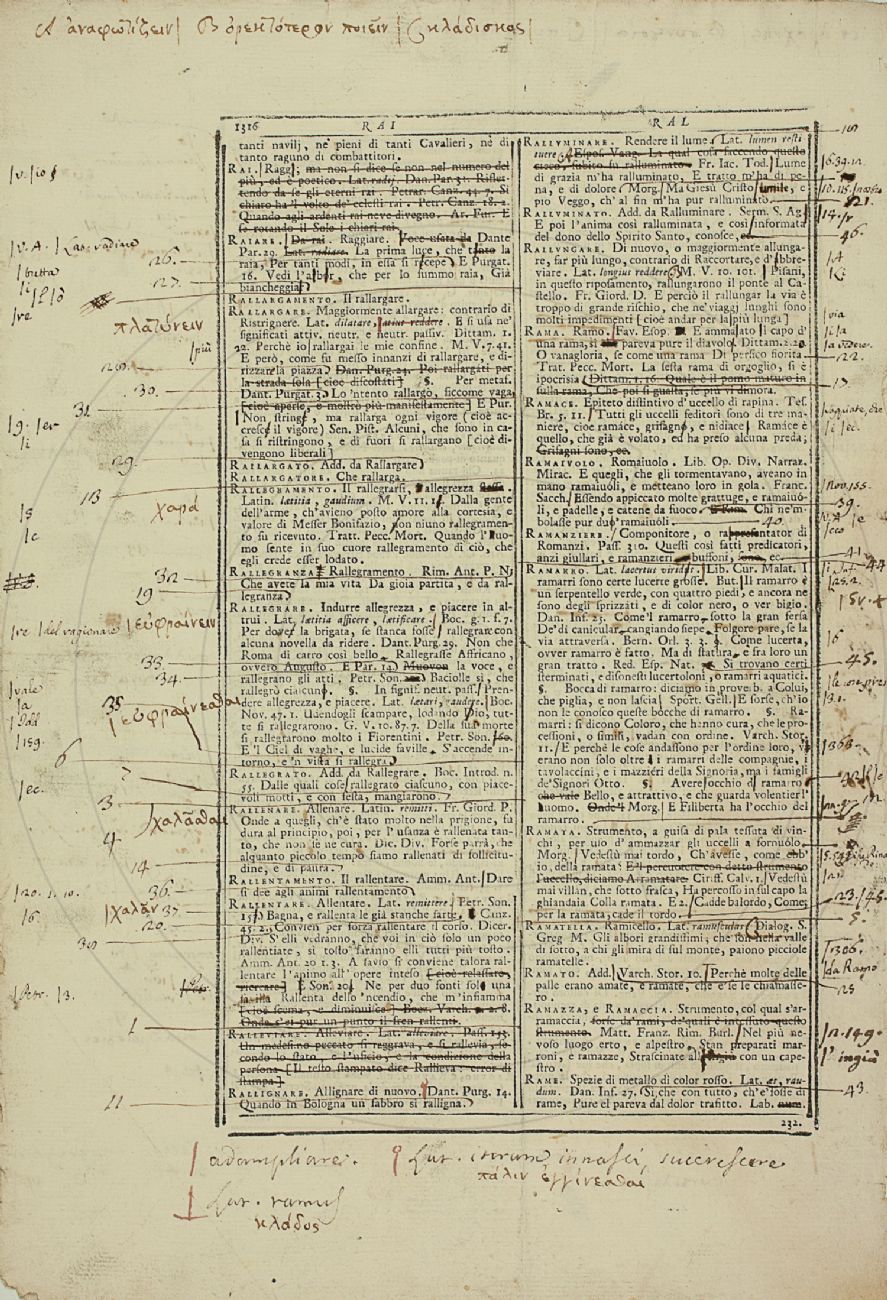 A ἀναφωτίζειν| B ὀρεκτότερον ποιεῖν | C κλάδισκος|
1316 RAI RAL
tanti navilj, nè pieni di tanti Cavalieri, nè di
tanto raguno di combattitori.
RAI. Raggj; ma non si dice se non nel numero del
più, ed è poetico. Lat. radj. Dan. Par. 31. Riflet-
tendo da se gli eterni rai. Petrar. Canz. 44. 7. Si
chiaro ha 'l volto de' celesti rai. Petr. Canz. 18. 2.
Quando agli ardenti rai neve divegno. Ar. Fur. E
se rotando il Sole i chiari rai.
RAIARE. Da rai. Raggiare. Voce usata da Dante
Par. 29. Lat. radiare. La prima luce, che tanto la
raia, Per tanti modi, in essa si recepe. E Purgat.
16. Vedi l'albor, che per lo fummo raia, Già
biancheggiar
RALLARGAMENTO. Il rallargare.
RALLARGARE. Maggiormente allargare: contrario di
Ristrignere. Lat. dilatare, latius reddere. E si usa ne'
significati attiv. neutr. e neutr. passiv. Dittam. 1.
22. Perchè io rallargai le mie confine. M. V. 7. 41.
E però, come fu messo innanzi di rallargare, e di-
rizzare la piazza Dan. Purg. 24. Poi rallargati per
la strada sola [cioè discostati] §. Per metaf.
Dant. Purgat. 3. Lo 'ntento rallargò, siccome vaga
[cioè aperse, e mostrò più manifestamente] E Pur.
Non strinse, ma rallarga ogni vigore (cioè ac-
cresce il vigore) Sen. Pist. Alcuni, che sono in ca-
sa si ristringono, e di fuori si rallargano [cioè di-
vengono liberali]
RALLARGATO. Add. da Rallargare
RALLARGATORE. Che rallarga.
RALLEGRAMENTO. Il rallegrarsi, allegrezza stessa.
Latin. lætitia, gaudium. M. V. 11. 18. Dalla gente
dell'arme, ch'avieno posto amore alla cortesia, e
valore di Messer Bonifazio, con niuno rallegramen-
to fu ricevuto. Tratt. Pecc. Mort. Quando l'uo-
mo sente in suo cuore rallegramento di ciò, che
egli crede esser lodato.
RALLEGRANZA Rallegramento. Rim. Ant. P. N.
Che avete la mia vita Da gioia partita, e da ral-
legranza
RALLEGRARE. Indurre allegrezza, e piacere in al-
trui. Lat. lætitia afficere, lætificare. Boc. g. 1. f. 7.
Per dover la brigata, se stanca fosse rallegrare con
alcuna novella da ridere. Dant. Purg. 29. Non che
Roma di carro così bello Rallegrasse Affricano,
ovvero Augusto. E Par. 14. Muovon la voce, e
rallegrano gli atti. Petr. Son. Baciolle sì, che
rallegrò ciascuno. §. In signif. neut. pass. Pren-
dere allegrezza, e piacere. Lat. lætari, gaudere. Boc.
Nov. 47. 1. Uuendogli scampare, lodando Dio, tut-
te si rallegrarono. G. V. 10. 87. 7. Della sua morte
si rallegrarono molto i Fiorentini. Petr. Son.
E 'l Ciel di vaghe, e lucide faville S'accende in-
torno, e 'n vista si rallegra
RALLEGRATO. Add. da Rallegrare. Boc. Introd. n.
55. Dalle quali cose rallegrato ciascuno, con piace-
voli motti, e con festa, mangiarono
RALLENARE. Allenare. Latin. remitti. Fr. Giord. P.
Onde a quegli, ch'è stato molto nella prigione, su
dura al principio, poi, per l'usanza è rallenata tan-
to, che non se ne cura. Dic. Div. Forse parrà, che
alquanto piccolo tempo siamo rallenati di sollecitu-
dine, e di paura.
RALLENTAMENTO. Il rallentare. Amm. Ant. Dare
si dee agli animi rallentamento
RALLENTARE. Allentare. Lat. remittere. Petr. Son.
15 Bagna, e rallenta le già stanche sarte. Canz.
45. 2. Convien per forza rallentare il corso. Dicer.
Div. S'elli vedranno, che voi in ciò solo un poco
rallentiate, sì tosto saranno elli tutti più tosto.
Amm. Ant. 20 1. 3. A savio si conviene talora ral-
lentare l'animo all'opere inteso [cioè relassato,
ricreare] E Son. 20. Nè per duo fonti sol una
favilla Rallenta dello 'ncendio, che m'infiamma
[cioè scema, e diminuisce] Boez. Varch. 2. 8.
Onde s'ei pur un punto il fren rallenti.
RALLEVIARE. Alleviare. Lat. allevare. Pass. 143.
Un medesimo peccato si reggrava, e si rallevia, se-
condo lo stato, e l'uficio, e la condizione della
persona [Il testo stampato dice Rallieva: error di
stampa]
RALLIGNARE. Allignare di nuovo. Dant. Purg. 14.
Quando in Bologna un fabbro si ralligna.
RALLUMINARE. Rendere il lume. Lat. lumen resti
tuere. Espos. Vang. La qual cosa faccendo questo
cieco, subito fu ralluminato. Fr. Iac. Tod. Lume
di grazia m'ha ralluminato, E tratto m'ha di pe-
na, e di dolore. Morg. Ma Giesù Cristo, umile, e
pio Veggo, ch'al fin m'ha pur ralluminato.
RALLUMINATO. Add. da Ralluminare. Serm. S. Ag.
E poi l'anima così ralluminata, e così informata
del dono dello Spirito Santo, conosce, ec.
RALLUNGARE. Di nuovo, o maggiormente allunga-
re, far più lungo, contrario di Raccortare, e d'abbre-
viare. Lat. longius reddere. M. V. 10. 101. I Pisani,
in questo riposamento, rallungarono il ponte al Ca-
stello. Fr. Giord. D. E perciò il rallungar la via è
troppo di grande rischio, che ne'viaggj lunghi sono
molti impedimenti [cioè andar per la più lunga]
RAMA. Ramo. Fav. Esop. E ammazato il capo d'
una rama, sì pareva pure il diavolo. Dittam. 2. 20.
O vanagloria, se come una rama Di persico fiorita
Trat. Pecc. Mort. La sesta rama di orgoglio, si è
ipocrisia. Dittam. 1. 16. Quale è il pomo maturo in
sulla rama, Che poi si guasta, se più vi dimora.
RAMACE. Epiteto distintivo d'uccello di rapina. Tes.
Br. 5. 11. Tutti gli uccelli feditori sono di tre ma-
niere, cioè ramace, grifagno, e nidiace. Ramace è
quello, che già è volato, ed ha preso alcuna preda;
Grifagni sono, ec.
RAMAIVOLO. Romaiuolo. Lib. Op. Div. Narraz.
Mirac. E quegli, che gli tormentavano, aveano in
mano ramaiuoli, e metteano loro in gola. Franc.
Sacch. Essendo appiccato molte grattuge, e ramaiuo-
li, e padelle, e catene da fuoco. Chi ne'm-
bolasse pur duo' ramaiuoli.
ROMANZIERE. Componitore, o rappresentator di
Romanzi. Pass. 310. Questi così fatti predicatori,
anzi giullari, e ramanzieri, buffoni, sono, ec.
RAMARRO. Lat. lacertus viridis. Lib. Cur. Malat. I
ramarri sono certe lucerte grosse. But. Il ramarro è
un serpentello verde, con quattro piedi, e ancora ne
sono degli sprizzati, e di color nero, o ver bigio.
Dan. Inf. 25. Come 'l ramarro sotto la gran fersa
De'dì canicular, cangiando siepe, Folgore pare, se la
via attraversa. Bern. Orl. 3. 3. Come lucerta,
ovver ramarro è fatto. Ma di statura, e fra loro un
gran tratto. Red. Esp. Nat. Si trovano certi
sterminati, e disonesti lucertoloni, o ramarri aquatici.
§. Bocca di ramarro: diciamo in proverb. a Colui,
che piglia, e non lascia. Sport. Gell. E forse, ch'io
non le conosco quelle bocche di ramarro. §. Ra-
marri: si dicono Coloro, che hanno cura, che le pro-
cessioni, o simili, vadan con ordine. Varch. Stor.
11. E perchè le cose andassono per l'ordine loro, v'
erano non solo oltre i ramarri delle compagnie, i
tavolaccini, e i mazzieri della Signoria, ma i famigli
de'Signori Otto. §. Avere occhio di ramarro
che vale Bello, e attrattivo, e che guarda volentier l'
uomo. Onde 'l Morg. E Filiberta ha l'occhio del
ramarro.
RAMATA. Strumento, a guisa di pala tessuta di vin-
chj, per uso d'ammazzar gli uccelli a fornuolo.
Morg. Vedestù mai tordo, Ch'avesse, come ebb'
io, della ramata: E 'l percuotere con detto strumento
l'uccello, diciamo Arramatare. Ciriff. Calv. 1. Vedestù
mai villan, che sotto frasca, Ha percosso in sul capo la
ghiandaia Colla ramata. E 2. Cadde balordo, Come,
per la ramata, cade il tordo.
RAMATELLA. Ramicello. Lat. ramusculus. Dialog. S.
Greg M. Gli albori grandissimi, che son nella valle
di sotto, a chi gli mira di sul monte, paiono picciole
ramatelle.
RAMATO. Add. Varch. Stor. 10. Perchè molte delle
palle erano amate, e ramate, che e' se le chiamasse-
ro.
RAMAZZA, e RAMACCIA. Strumento, col qual s'ar-
ramaccia, forse da'rami, de'quali è intessuto questo
strumento. Matt. Franz. Rim. Burl. Nel più ne-
voso luogo erto, e alpestro. Stan preparati mar-
roni, e ramazze, Strascinate all'ingiù con un cape-
stro.
RAME. Spezie di metallo di color rosso. Lat. æs, rau-
dum. Dan. Inf. 27. Sì, che con tutto, ch'e'fosse di
rame, Pure el pareva dal dolor trafitto. Lab. num.
232.
26.
27.
πλατύνειν
|più
30.
31.
29.
113
χαρά
32.
19
|εὐφραίνειν
33.
34.
35
|εὐφραίνεσθαι
6
7
3
|χαλᾶσθαι
4
14
36.
|χαλᾶν 37.
20.
1
11
46.
|via
122.
13.
39.
40.
41
45.
23. 45.
5.
|da Ramo
25
l'ingiù
43.
| adampliare. φ Lat. iterum innasci, succrescere
πάλιν ἐγγίνεσθαι
Lat. ramus
κλάδος